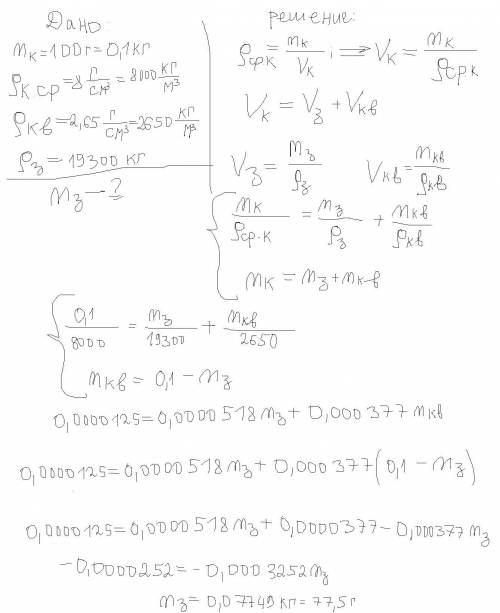 Дано:
mк=100г=0,1кг
ρк ср=8 г/см³=8000 кг/м³
ρкв=2,65 г/см³=2650 кг/м³
ρз=19300 кг
mз-?
решение:
ρср к = mк/Vк ; ⟹ Vк = mк/ρср к
Vк = Vз + Vкв
Vз = mз/ρз Vкв = mкв/ρкв
{ mк/ρср.к = mз/ρз + mкв/ρкв
mк = mз + mкв
{ 0,1/8000 = mз/19300 + mкв/2650
mкв = 0,1 - mз
0,0000125=0,0000518mз + 0,000377mкв
0,0000125=0,0000518mз + 0,000377(0,1 - mз)
0,0000125=0,0000518mз + 0,0000377 - 0,000377mз
-0,0000252= -0,0003252mз
mз = 0,07749кг = 77,5г